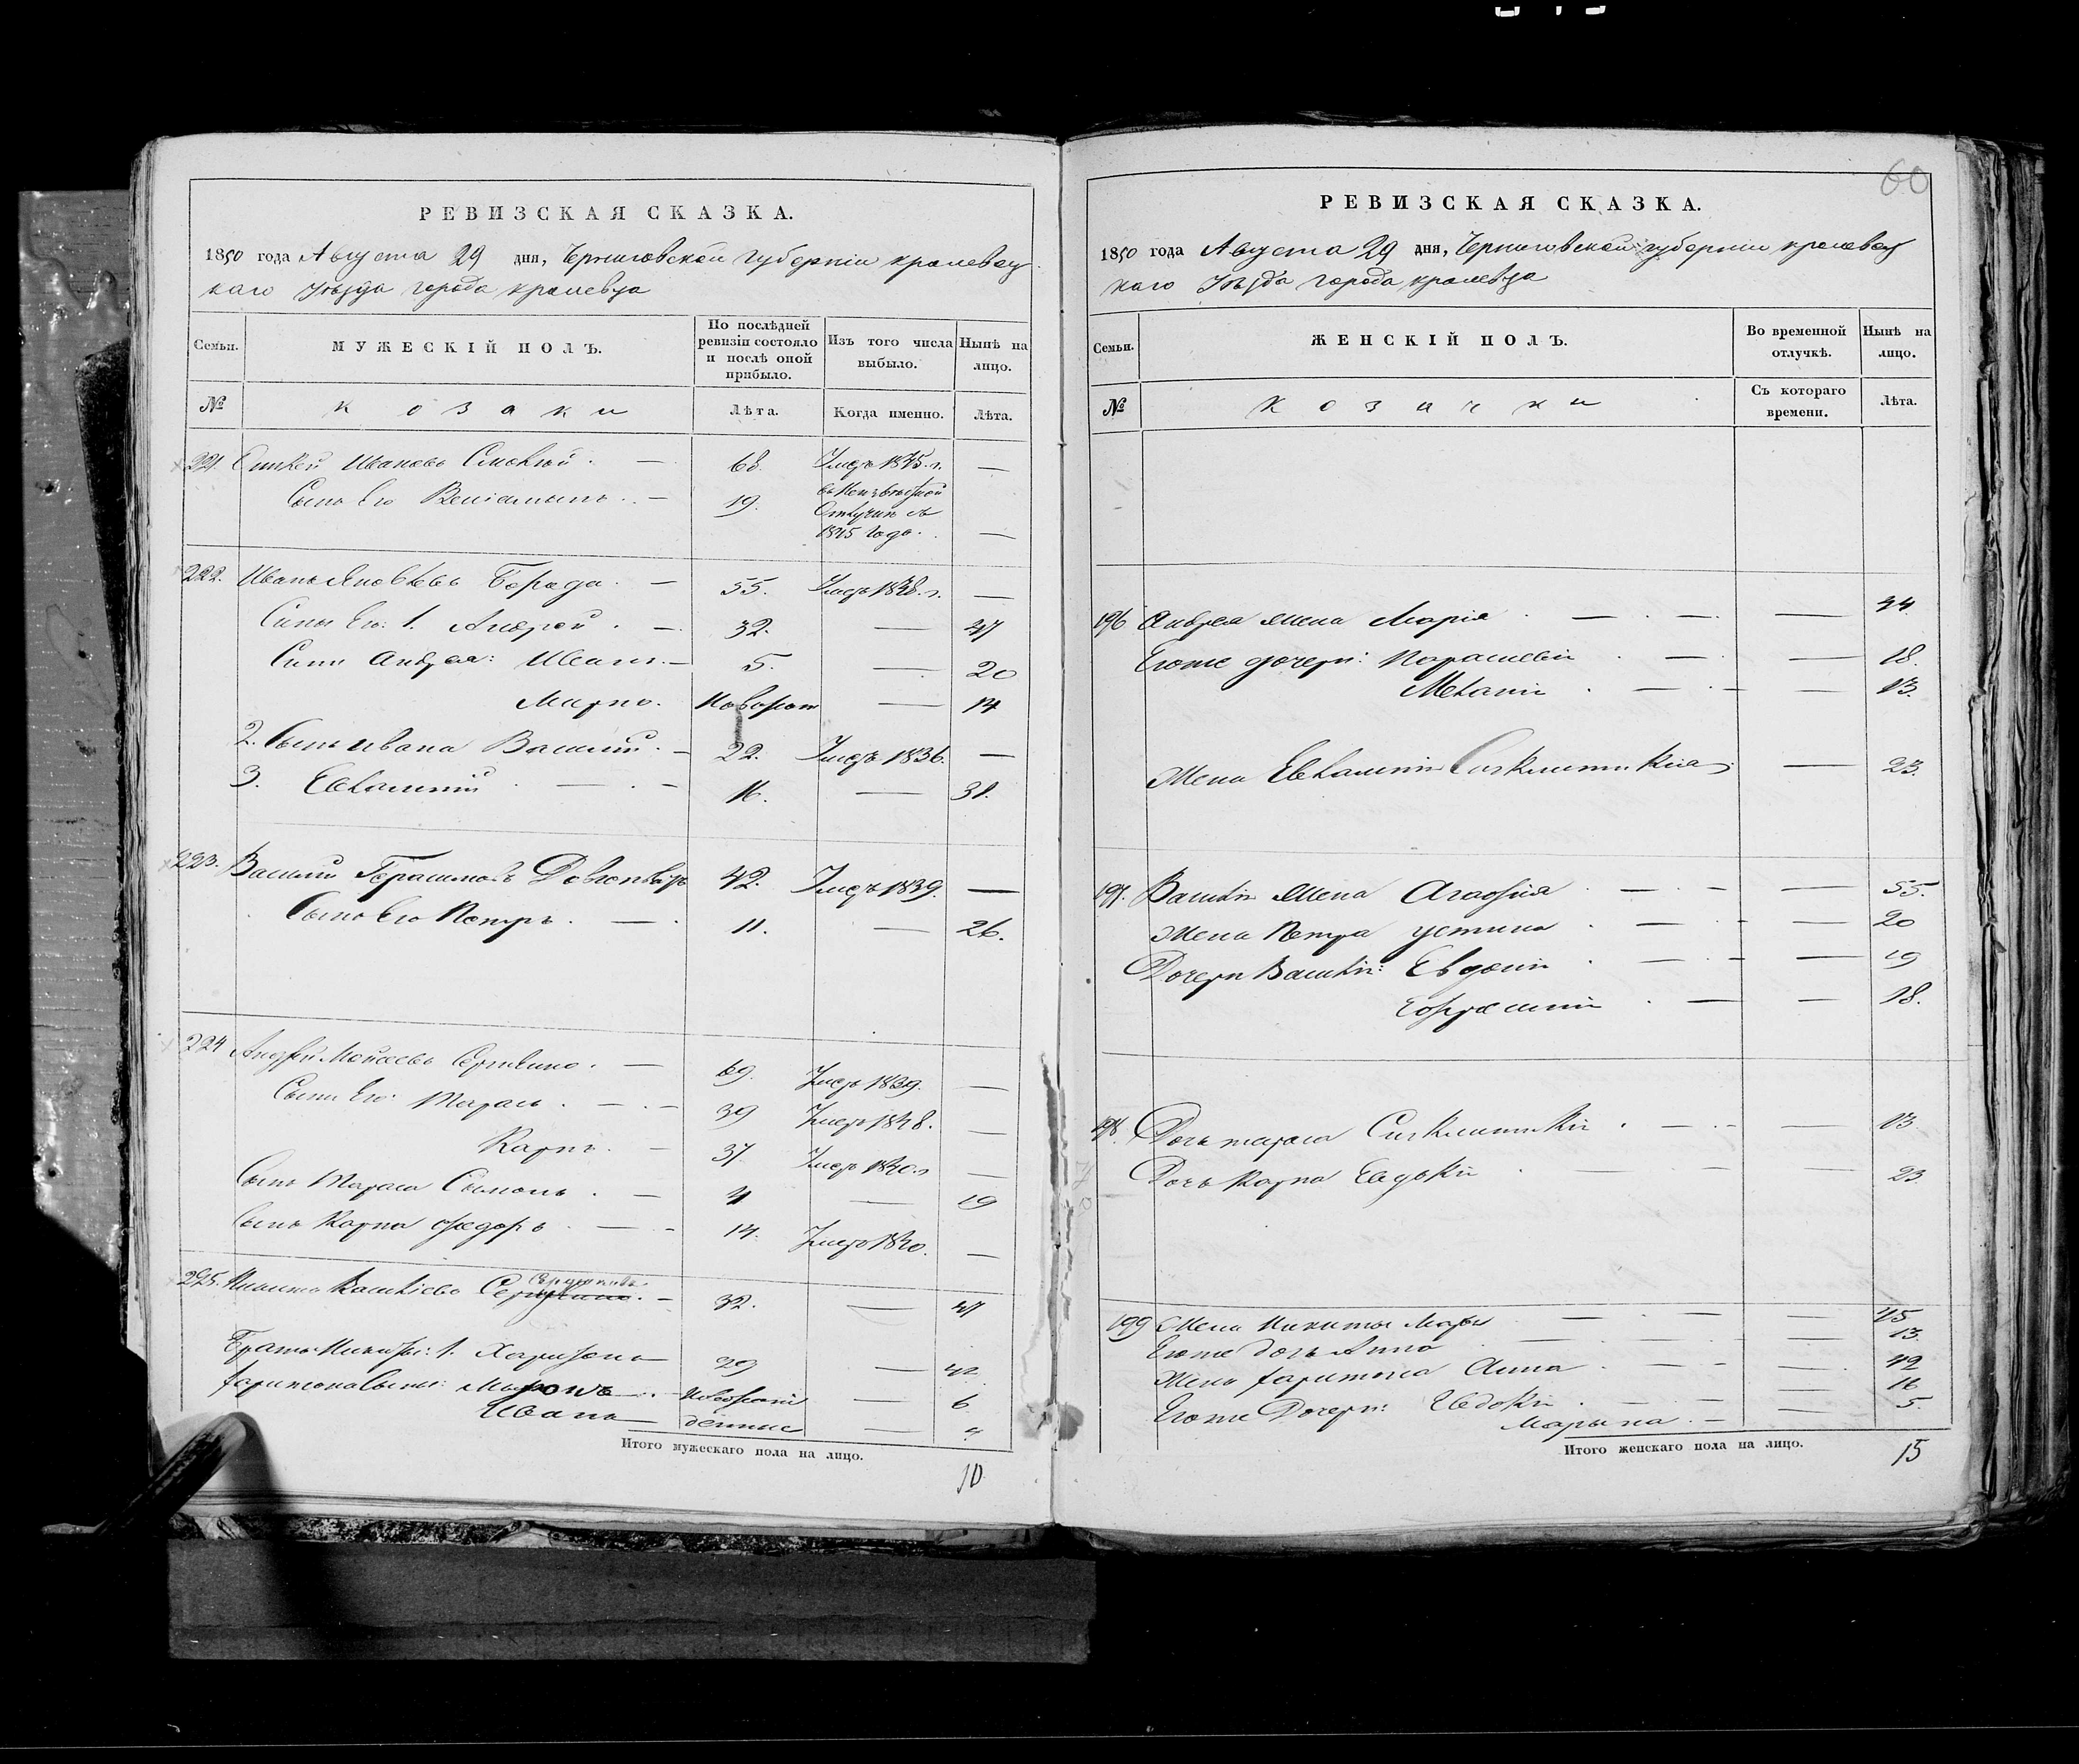 60
РЕВИЗСКАЯ СКАЗКА.
1850 года Августа 29 дня, Черниговской губерніи кролевец
каго Уѣзда города кролевца
Семьи. МУЖЕСКІЙ ПОЛЪ. По послѣдней ревизіи состояло и послѣ оной прибыло. Изъ того числа выбыло. Нынѣ на лицо.
№ козаки Лѣта. Когда именно. Лѣта.
221. Ивановъ 68. Умеръ 1845. г. —
Сынъ Его Веніаминъ 19. въ Неизвѣстной
Отлучкѣ съ
1845 Года. —
222. Иванъ Яковлевъ Борода. — 55. Умеръ 1848. г. —
Сыны Его: 1. Андрей. — 32. — 47
Сыны Андрея: Иванъ. — 5. — 20
Марко. Новорож — 14
2. Сынъ Ивана Василій. — 22. Умеръ 1836. —
3. Евлампій — 16. — 31.
223. Василій Герасимовъ 42. Умеръ 1839. —
Сынъ Его Петръ. — 11. — 26.
224 Андрей Моисеевъ — 69. Умеръ 1839. —
Сыны Его: Тарасъ. — 39 Умеръ 1848. —
Карпъ. — 37. Умеръ 1840. г —
Сынъ Тараса Сымонъ. — 4 — 19
Сынъ Карпа Федоръ — 14. Умеръ 1840. —
225. Никита Васильевъ — 32. — 47
Братъ Никиты: 1. Харитонъ — 29 — 42
Харитона Сыны: Миронъ — Новорож — 6
Иванъ — денные —
Итого мужескаго пола на лицо.
10
РЕВИЗСКАЯ СКАЗКА.
1850 года Августа 29 дня, Черниговской губерніи кролевец
каго Уѣзда города кролевца
Семьи. ЖЕНСКІЙ ПОЛЪ. Во временной отлучкѣ. Нынѣ на лицо.
№ козачки Съ котораго времени. Лѣта.
196 Андрея Жена Марія — — 44
Егоже дочери: Параскевія — — 18.
Меланія — — 13.
Жена Евлампія — 23.
197. Василія Жена Агафія — — 55.
Жена Петра Устина — — 20
Дочери Василія: Евдокія — — 19
Ефросинія — — 18.
198. Дочь Тараса — — 13
Дочь Карпа — — 23
199 Жена Никиты — — 45
Егоже дочь Анна — — 13.
Жена Харитона Анна — — 42
Егоже Дочери: Евдокія — — 16
Марына — — 5.
Итого женскаго пола на лицо.
15